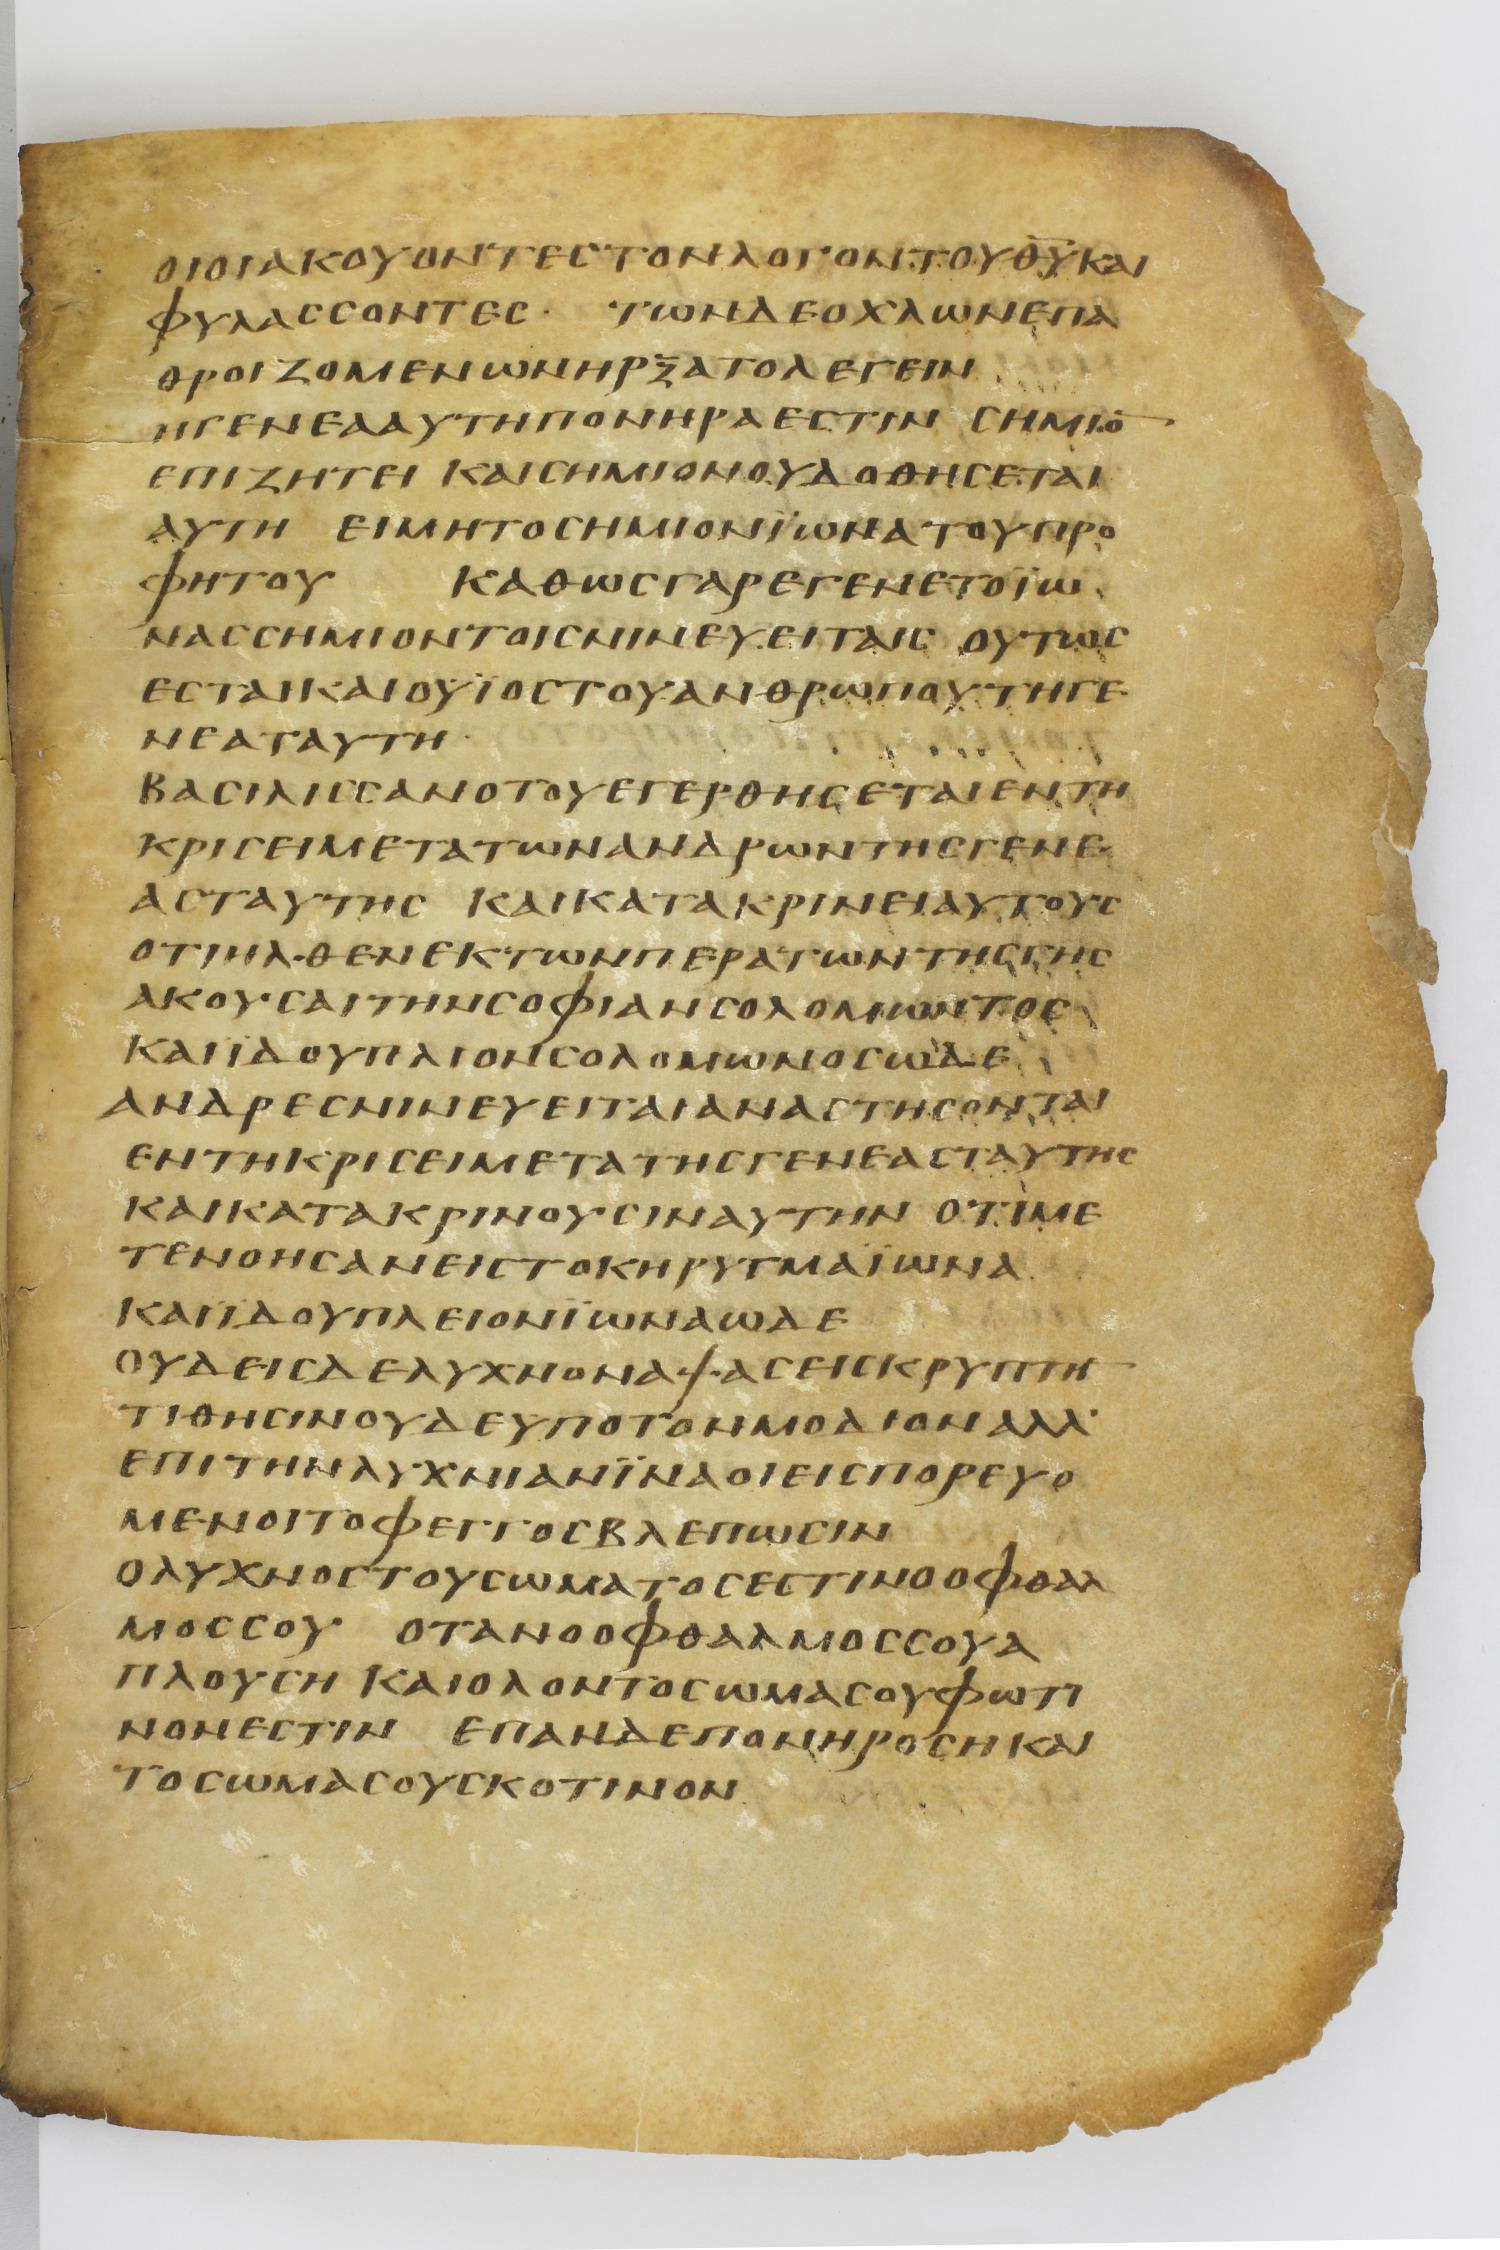 ΟΙΟΙΑΚΟΥΟΝΤΕСΤΟΝΛΟΓΟΝΤΟΥΘ̅Υ̅ΚΑΙ
ΦΥΛΑССΟΝΤΕС· ΤωΝΔΕΟΧΛωΝΕΠΑ
ΘΡΟΙΖΟΜΕΝωΝΗΡΞΑΤΟΛΕΓΕΙΝ
ΗΓΕΝΕΑΑΥΤΗΠΟΝΗΡΑΕСΤΙΝ СΗΜΙΟ̅
ΕΠΙΖΗΤΕΙ ΚΑΙСΗΜΙΟΝΟΥΔΟΘΗСΕΤΑΙ
ΑΥΤΗ ΕΙΜΗΤΟСΗΜΙΟΝΪωΝΑΤΟΥΠΡΟ
ΦΗΤΟΥ ΚΑΘωСΓΑΡΕΓΕΝΕΤΟΪω
ΝΑССΗΜΙΟΝΤΟΙСΝΙΝΕΥΕΙΤΑΙС ΟΥΤωС
ΕСΤΑΙΚΑΙΟΥΪΟСΤΟΥΑΝΘΡωΠΟΥΤΗΓΕ
ΝΕΑΤΑΥΤΗ·
ΒΑСΙΛΙССΑΝΟΤΟΥΕΓΕΡΘΗСΕΤΑΙΕΝΤΗ
ΚΡΙСΕΙΜΕΤΑΤωΝΑΝΔΡωΝΤΗСΓΕΝΕ
ΑСΤΑΥΤΗС ΚΑΙΚΑΤΑΚΡΙΝΕΙΑΥΤΟΥС
ΟΤΙΗΛΘΕΝΕΚΤωΝΠΕΡΑΤωΝΤΗСΓΗС
ΑΚΟΥСΑΙΤΗΝСΟΦΙΑΝСΟΛΟΜωΝΤΟС
ΚΑΙΪΔΟΥΠΛΙΟΝСΟΛΟΜωΝΟСωΔΕ
ΑΝΔΡΕСΝΙΝΕΥΕΙΤΑΙΑΝΑСΤΗСΟΝΤΑΙ
ΕΝΤΗΚΡΙСΕΙΜΕΤΑΤΗСΓΕΝΕΑСΤΑΥΤΗС
ΚΑΙΚΑΤΑΚΡΙΝΟΥСΙΝΑΥΤΗΝ ΟΤΙΜΕ
ΤΕΝΟΗСΑΝΕΙСΤΟΚΗΡΥΓΜΑΪωΝΑ
ΚΑΙΪΔΟΥΠΛΕΙΟΝΪωΝΑωΔΕ
ΟΥΔΕΙСΔΕΛΥΧΝΟΝΑΨΑСΕΙСΚΡΥΠΤΗ̅
ΤΙΘΗСΙΝΟΥΔΕΥΠΟΤΟΝΜΟΔΙΟΝΑΛΛ'
ΕΠΙΤΗΝΛΥΧΝΙΑΝΪΝΑΟΙΕΙСΠΟΡΕΥΟ
ΜΕΝΟΙΤΟΦΕΓΓΟСΒΛΕΠωСΙΝ
ΟΛΥΧΝΟСΤΟΥСωΜΑΤΟСΕСΤΙΝΟΟΦΘΑΛ
ΜΟССΟΥ ΟΤΑΝΟΟΦΘΑΛΜΟССΟΥΑ
ΠΛΟΥСΗ ΚΑΙΟΛΟΝΤΟСωΜΑСΟΥΦωΤΙ
ΝΟΝΕСΤΙΝ ΕΠΑΝΔΕΠΟΝΗΡΟСΗΚΑΙ
ΤΟСωΜΑСΟΥСΚΟΤΙΝΟΝ